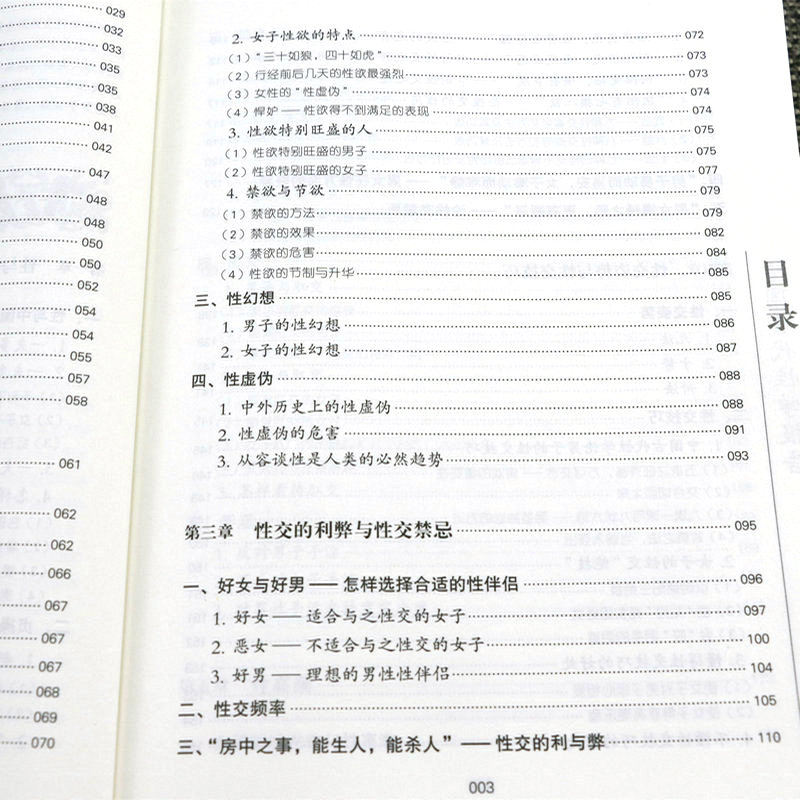 029
032
033
035
035
038
041
042
047
048
048
050
050
052
054
054
055
057
058
061
062
062
066
067
067
067
068
069
070
2. 女子性欲的特点 072
（1）“三十如狼，四十如虎” 073
（2）行经前后几天的性欲最强烈 073
（3）女性的“性虚伪” 074
（4）悍妒——性欲得不到满足的表现 074
3. 性欲特别旺盛的人 075
（1）性欲特别旺盛的男子 075
（2）性欲特别旺盛的女子 077
4. 禁欲与节欲 079
（1）禁欲的方法 079
（2）禁欲的效果 082
（3）禁欲的危害 084
（4）性欲的节制与升华 085
三、性幻想 085
1. 男子的性幻想 086
2. 女子的性幻想 087
四、性虚伪 088
1. 中外历史上的性虚伪 088
2. 性虚伪的危害 091
3. 从容谈性是人类的必然趋势 093
第三章 性交的利弊与性交禁忌 095
一、好女与好男——怎样选择合适的性伴侣 096
1. 好女——适合与之性交的女子 097
2. 恶女——不适合与之性交的女子 100
3. 好男——理想的男性性伴侣 104
二、性交频率 105
三、“房中之事，能生人，能杀人”——性交的利与弊 110
003
目录